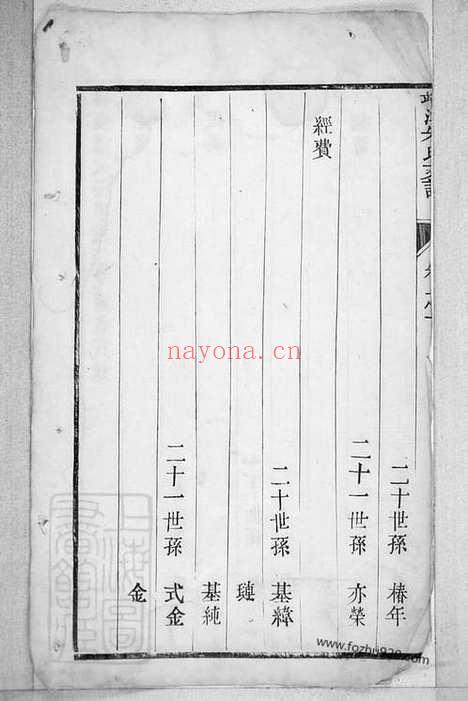 二十世孫 椿年
二十一世孫 亦榮
經費
二十世孫 基緯
璉
基純
二十一世孫 式金
金
nayona.cn
上海圖書館藏